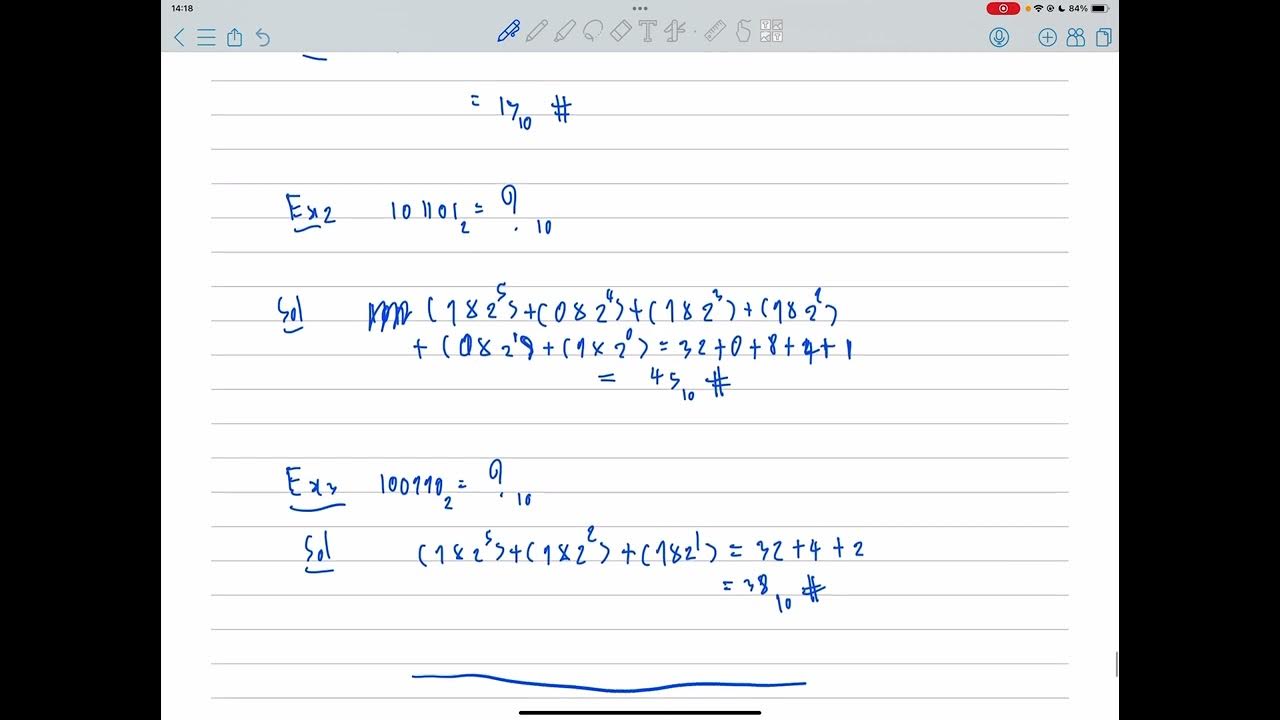 14:18
84%
= 17₁₀ #
Ex2 101101₂ = ?₁₀
Sol (1×2⁵)+(0×2⁴)+(1×2³)+(1×2²)
+(0×2¹)+(1×2⁰) = 32+0+8+4+1
= 45₁₀ #
Ex3 100110₂ = ?₁₀
Sol (1×2⁵)+(1×2²)+(1×2¹) = 32+4+2
= 38₁₀ #